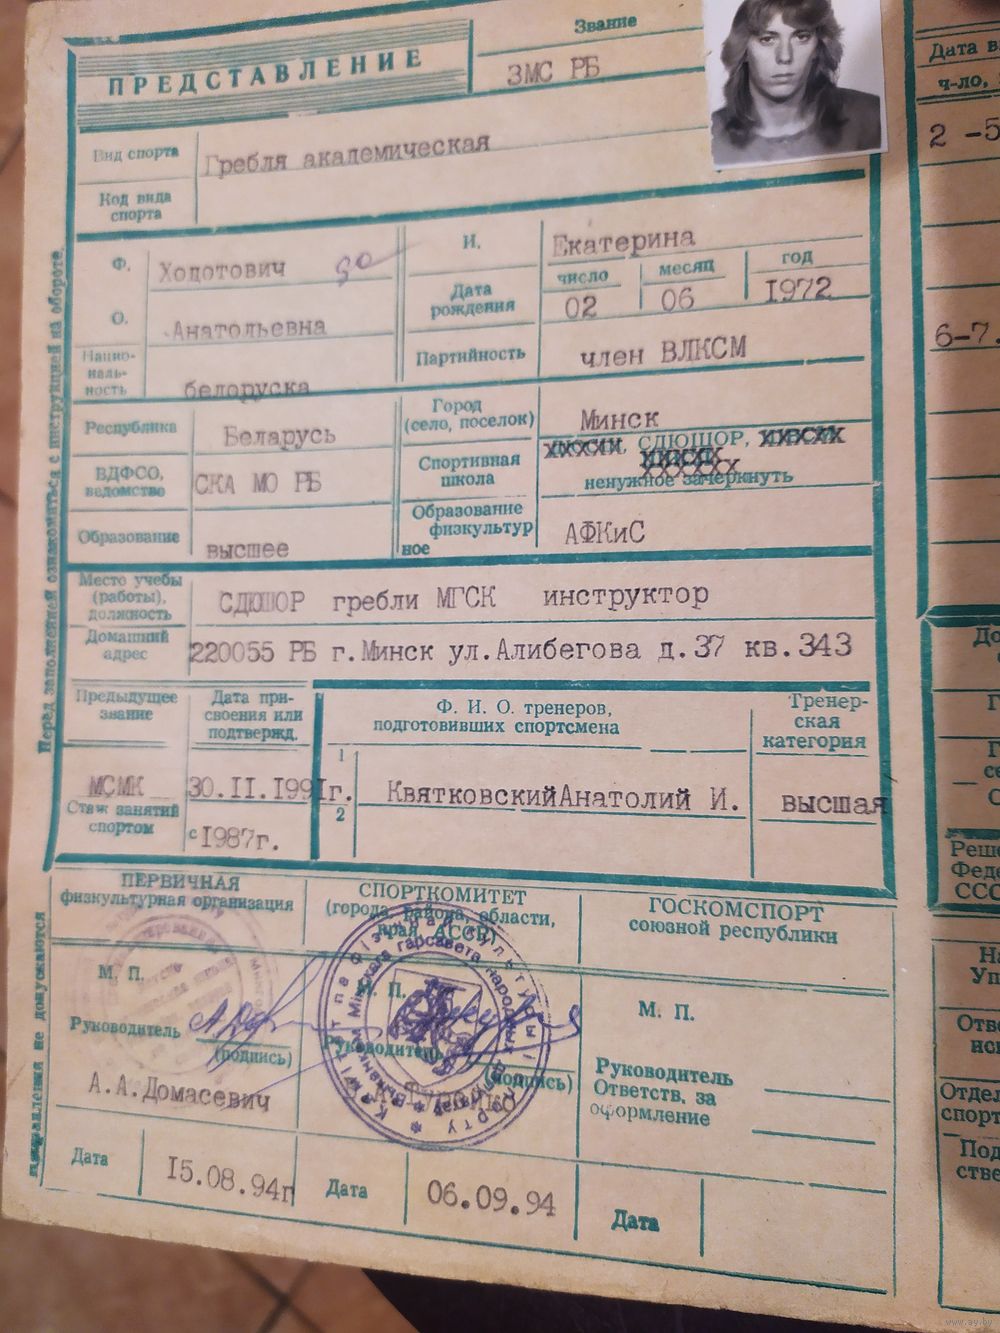 ПРЕДСТАВЛЕНИЕ
Звание
ЗМС РБ
Вид спорта
Гребля академическая
Код вида
спорта
Ф.
Ходотович
И.
Екатерина
О.
Анатольевна
Дата
рождения
число
месяц
год
02
06
1972
Нацио-
наль-
ность
белоруска
Партийность
член ВЛКСМ
Республика
Беларусь
Город
(село, поселок)
Минск
ВДФСО,
ведомство
СКА МО РБ
Спортивная
школа
СДЮШОР,
ненужное зачеркнуть
Образование
высшее
Образование
физкультур
ное
АФКиС
Место учебы
(работы),
должность
СДЮШОР гребли МГСК инструктор
Домашний
адрес
220055 РБ г.Минск ул.Алибегова д.37 кв.343
Предыдущее
звание
Дата при-
своения или
подтвержд.
Ф. И. О. тренеров,
подготовивших спортсмена
Тренер-
ская
категория
МСМК
30.II.1991г.
1
КвятковскийАнатолий И.
высшая
2
Стаж занятий
спортом
с 1987г.
ПЕРВИЧНАЯ
физкультурная организация
СПОРТКОМИТЕТ
(города, района, области,
края, АССР)
ГОСКОМСПОРТ
союзной республики
М. П.
М. П.
М. П.
Руководитель
(подпись)
А.А.Домасевич
Руководитель
(подпись)
Руководитель
Ответств. за
оформление
Дата
15.08.94г
Дата
06.09.94
Дата
Перед заполнением ознакомиться с инструкцией на обороте.
не допускаются
Дата в
ч-ло,
2 -5
6-7.
До
Г
Г
се
С
Реше
Феде
СССР
На
Уп
Отве
исп
Отдел
спорт
Под
стве
www.ay.by